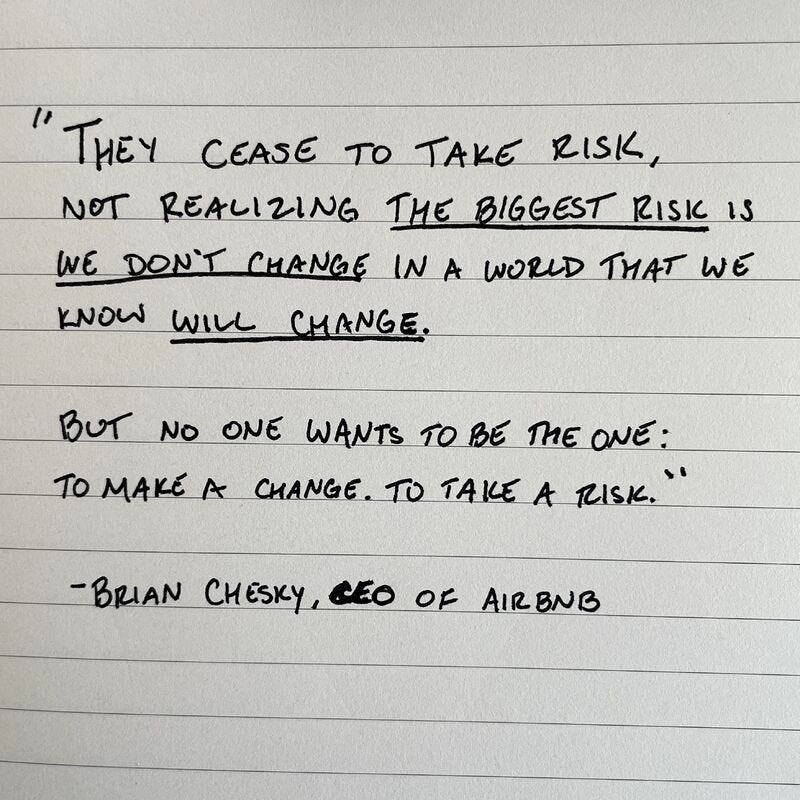 "THEY CEASE TO TAKE RISK,
NOT REALIZING THE BIGGEST RISK IS
WE DON'T CHANGE IN A WORLD THAT WE
KNOW WILL CHANGE.
BUT NO ONE WANTS TO BE THE ONE:
TO MAKE A CHANGE. TO TAKE A RISK."
-BRIAN CHESKY, CEO OF AIRBNB